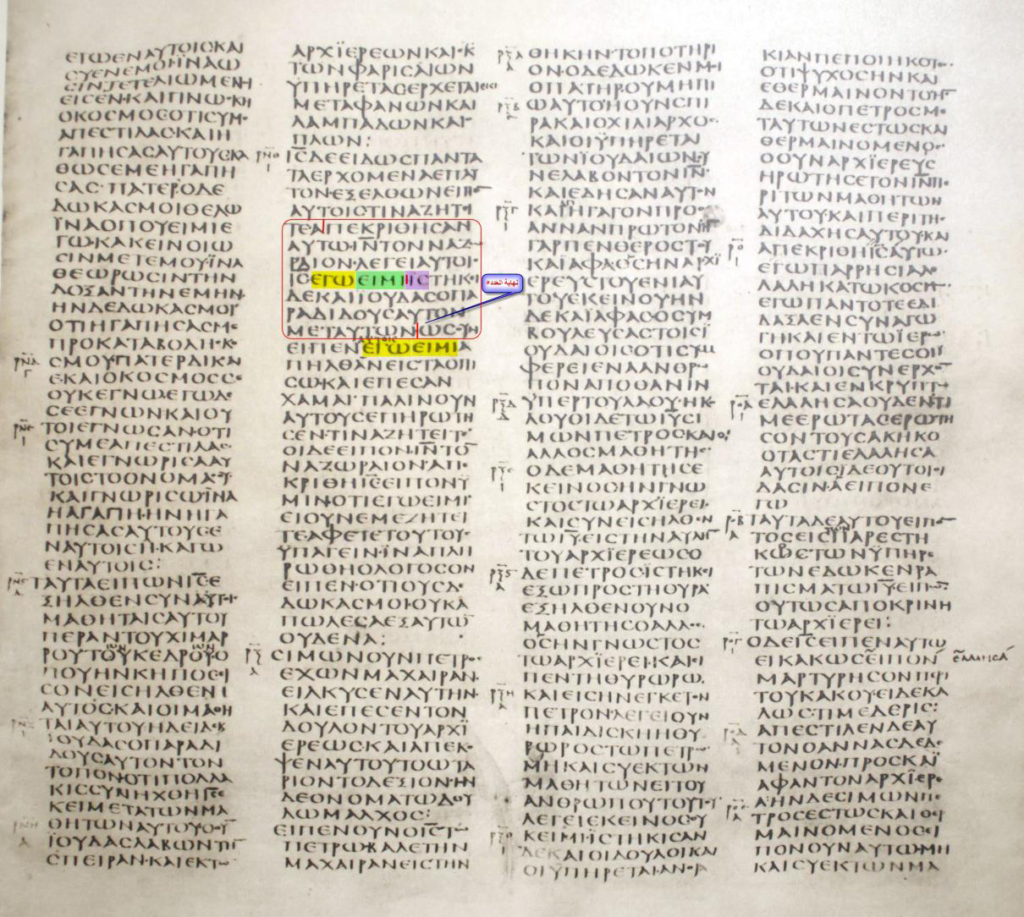 ΕΓΩΕΝΑΥΤΟΙΟΚΑΙ
CΥΕΝΕΜΟΙΗΝΑΩ
CΙΝΤΕΤΕΛΙΩΜΕΝΗ
ΟΚΟCΜΟCΟΤΙCΥΜ
ΑΠΕCΤΙΛΑCΚΑΙΗ
ΓΑΠΗCΑCΑΥΤΟΥCΚΑ
ΘΩCΕΜΕΗΓΑΠΗ
CΑC·ΠΑΤΕΡΟΔΕ
ΔΩΚΑCΜΟΙΘΕΛΩ
ΪΝΑΟΠΟΥΕΙΜΙΕ
ΓΩΚΑΚΕΙΝΟΙΩ
CΙΝΜΕΤΕΜΟΥΪΝΑ
ΘΕΩΡΩCΙΝΤΗΝ
ΔΟΞΑΝΤΗΝΕΜΗΝ
ΗΝΔΕΔΩΚΑCΜΟΙ
ΟΤΙΗΓΑΠΗCΑCΜ
ΠΡΟΚΑΤΑΒΟΛΗ·Κ
CΜΟΥΠΑΤΕΡΔΙΚΑΙ
ΕΚΑΙΟΚΟCΜΟCC
ΟΥΚΕΓΝΩΕΓΩΔΕ
CΕΕΓΝΩΝΚΑΙΟΥ
ΤΟΙΕΓΝΩCΑΝΟΤΙ
CΥΜΕΑΠΕCΤΙΛΑC
ΚΑΙΕΓΝΩΡΙCΑΑΥ
ΤΟΙCΤΟΟΝΟΜΑ
ΚΑΙΓΝΩΡΙCΩΪΝΑ
ΗΑΓΑΠΗ·ΗΝΗΓΑ
ΠΗCΑCΑΥΤΟΥCΕ
ΝΑΥΤΟΙCΗ·ΚΑΓΩ
ΕΝΑΥΤΟΙC:
ΤΑΥΤΑΕΙΠΩΝΙCΕ
ΞΗΛΘΕΝCΥΝΑΥΤ
ΜΑΘΗΤΑΙCΑΥΤΟΥ
ΠΕΡΑΝΤΟΥΧΙΜΑΡ
ΡΟΥΤΟΥΚΕΔΡΟΥΟ
ΠΟΥΗΝΚΗΠΟC
CΟΝΕΙCΗΛΘΕΝΙ
ΑΥΤΟCΚΑΙΟΙΜΑΘΗ
ΤΑΙΑΥΤΟΥΗΔΕΙΔΕΚ
ΙΟΥΔΑCΟΠΑΡΑΔΙ
ΔΟΥCΑΥΤΟΝΤΟΝ
ΤΟΠΟΝΟΤΙΠΟΛΛΑ
ΚΙCCΥΝΗΧΘΗΙC
ΚΕΙΜΕΤΑΤΩΝΜΑ
ΘΗΤΩΝΑΥΤΟΥΟ
ΪΟΥΔΑCΛΑΒΩΝΤΗ
CΠΕΙΡΑΝ·ΚΑΙΕΚΤ
ΑΡΧΪΕΡΕΩΝΚΑΙ·Κ
ΤΩΝΦΑΡΙCΑΙΩΝ
ΥΠΗΡΕΤΑCΕΡΧΕΤΑΙ
ΜΕΤΑΦΑΝΩΝΚΑΙ
ΛΑΜΠΑΔΩΝΚΑΙ
ΠΛΩΝ:
ΙCΔΕΕΙΔΩCΠΑΝΤΑ
ΤΑΕΡΧΟΜΕΝΑΕΠΑΥ
ΤΟΝΕΞΕΛΘΩΝΕΙΠ
ΑΥΤΟΙCΤΙΝΑΖΗΤΙ
ΤΕΑΠΕΚΡΙΘΗCΑΝ
ΑΥΤΩΙΝΤΟΝΝΑΖ
ΡΑΙΟΝ·ΛΕΓΕΙΑΥΤΟΙ
ΙCΕΓΩΕΙΜΙΙCΤΗΚΙ
ΔΕΚΑΙΪΟΥΔΑCΟΠΑ
نهاية العدد
ΡΑΔΙΔΟΥCΑΥΤΟΝ
ΜΕΤΑΥΤΩΝΩCΟΥ
ΕΙΠΕΝΕΓΩΕΙΜΙΑ
ΠΗΛΘΑΝΕΙCΤΑΟΠΙ
CΩΚΑΙΕΠΕCΑΝ
ΧΑΜΑΙΠΑΛΙΝΟΥΝ
ΑΥΤΟΥCΕΠΗΡΩΤΗ
CΕΝΤΙΝΑΖΗΤΕΙΤΕ
ΟΙΔΕΕΙΠΟΝΙΝΤΟ
ΝΑΖΩΡΑΙΟΝ·ΑΠ
ΚΡΙΘΗΙCΕΙΠΟΝΥ
ΜΙΝΟΤΙΕΓΩΕΙΜΙ
ΕΙΟΥΝΕΜΕΖΗΤΕΙ
ΤΕΑΦΕΤΕΤΟΥΤΟΥ
ΥΠΑΓΕΙΝ·ΙΝΑΠΛΗ
ΡΩΘΗΟΛΟΓΟCΟΝ
ΕΙΠΕΝ·ΟΤΙΟΥCΔΕ
ΔΩΚΑCΜΟΙΟΥΚΑ
ΠΩΛΕCΑΕΞΑΥΤΩ
ΟΥΔΕΝΑ:
CΙΜΩΝΟΥΝΠΕΤΡ
ΕΧΩΝΜΑΧΑΙΡΑΝ
ΕΙΛΚΥCΕΝΑΥΤΗΝ
ΚΑΙΕΠΕCΕΝΤΟΝ
ΔΟΥΛΟΝΤΟΥΑΡΧΪ
ΕΡΕΩCΚΑΙΑΠΕΚ
ΨΕΝΑΥΤΟΥΤΟΩΤΑ
ΡΙΟΝΤΟΔΕΞΙΟΝ·ΗΝ
ΔΕΟΝΟΜΑΤΩΔΟΥ
ΛΩΜΑΛΧΟC:
ΕΙΠΕΝΟΥΝΟΙCΤ
ΠΕΤΡΩΒΑΛΕΤΗΝ
ΜΑΧΑΙΡΑΝΕΙCΤΗΝ
ΘΗΚΗΝ·ΤΟΠΟΤΗΡΙ
ΟΝΟΔΕΔΩΚΕΝΜΙ
ΟΠΑΤΗΡΟΥΜΗΠΙ
ΩΑΥΤΟΗΟΥΝCΠΙ
ΡΑΚΑΙΟΧΙΛΙΑΡΧΟ
ΚΑΙΟΙΫΠΗΡΕΤΑΙ
ΤΩΝΪΟΥΔΑΙΩΝ
ΝΕΛΑΒΟΝΤΟΝΙΝ
ΚΑΙΕΔΗCΑΝΑΥΤΝ
ΚΑΙΗΓΑΓΟΝΠΡΟ
ΑΝΝΑΝΠΡΩΤΟΝΗ
ΓΑΡΠΕΝΘΕΡΟCΤ
ΚΑΙΑΦΑΟCΗΝΑΡΧΙ
ΕΡΕΥCΤΟΥΕΝΙΑΥ
ΤΟΥΕΚΕΙΝΟΥΗΝ
ΔΕΚΑΙΑΦΑCΟCΥΜ
ΒΟΥΛΕΥCΑCΤΟΙCΙ
ΟΥΔΑΙΟΙCΟΤΙCΥΜ
ΦΕΡΕΙΕΝΑΑΝΘΡ
ΠΟΝΑΠΟΘΑΝΙΝ
ΥΠΕΡΤΟΥΛΑΟΥΗΚ
ΛΟΥΘΙΔΕΤΩΙΥCΙ
ΜΩΝΠΕΤΡΟCΚΑΙΟ
ΑΛΛΟCΜΑΘΗΤΗ
ΟΔΕΜΑΘΗΤΗCΕ
ΚΕΙΝΟCΗΝΓΝΩ
CΤΟCΤΩΑΡΧΪΕΡΕΙ
ΚΑΙCΥΝΕΙCΗΛΘΝ
ΤΩΙΥΕΙCΤΗΝΑΥΛΗ
ΤΟΥΑΡΧΪΕΡΕΩCΟ
ΔΕΠΕΤΡΟCΪCΤΗΚΙ
ΕΞΩΠΡΟCΤΗΘΥΡΑ
ΕΞΗΛΘΕΝΟΥΝΟ
ΜΑΘΗΤΗCΟΑΛΛΟ
ΟCΗΝΓΝΩCΤΟC
ΤΩΑΡΧΪΕΡΕΙ·ΚΑΙ
ΠΕΝΤΗΘΥΡΩΡΩ
ΚΑΙΕΙCΗΝΕΓΚΕΤΝ
ΠΕΤΡΟΝ·ΛΕΓΕΙΟΥΝ
ΗΠΑΙΔΙCΚΗΗΘΥ
ΡΩΡΟCΤΩΠΕΤΡ
ΜΗΚΑΙCΥΕΚΤΩΝ
ΜΑΘΗΤΩΝΕΙΤΟΥ
ΑΝΘΡΩΠΟΥΤΟΥΤΥ
ΛΕΓΕΙΕΚΕΙΝΟCΟΥ
ΚΕΙΜΙΪCΤΗΚΙCΑΝ
ΔΕΚΑΙΟΙΔΟΥΛΟΙΚΑΙ
ΟΙΫΠΗΡΕΤΑΙΑΝΘΡΑ
ΚΙΑΝΠΕΠΟΙΗΚΟΤ
ΟΤΙΨΥΧΟCΗΝΚΑΙ
ΕΘΕΡΜΑΙΝΟΝΤΟΗΝ
ΔΕΚΑΙΟΠΕΤΡΟCΜ
ΤΑΥΤΩΝΕCΤΩCΚΑΙ
ΘΕΡΜΑΙΝΟΜΕΝΟ
ΟΟΥΝΑΡΧΪΕΡΕΥC
ΗΡΩΤΗCΕΤΟΝΙΝΠΕ
ΡΙΤΩΝΜΑΘΗΤΩΝ
ΑΥΤΟΥΚΑΙΠΕΡΙΤΗ
ΔΙΔΑΧΗCΑΥΤΟΥΚΑΙ
ΑΠΕΚΡΙΘΗΙCΑΥ
ΛΑΛΗΚΑΤΩΚΟC
ΕΓΩΠΑΝΤΟΤΕΕΔΙ
ΔΑΞΑΕΝCΥΝΑΓΩ
ΓΗΚΑΙΕΝΤΩΙΕΡΩ
ΟΠΟΥΠΑΝΤΕCΟΙΪ
ΟΥΔΑΙΟΙCΥΝΕΡΧ
ΤΑΙ·ΚΑΙΕΝΚΡΥΠΤ
ΕΛΑΛΗCΑΟΥΔΕΝΤΙ
ΜΕΕΡΩΤΑCΕΡΩΤΗ
CΟΝΤΟΥCΑΚΗΚΟ
ΟΤΑCΤΙΕΛΑΛΗCΑ
ΑΥΤΟΙCΪΔΕΟΥΤΟΙ
ΔΑCΙΝ·ΑΕΙΠΟΝΕ
ΓΩ
ΤΑΥΤΑΔΕΑΥΤΟΥΕΙΠ
ΤΟCΕΙCΠΑΡΕCΤΗ
ΚΩCΤΩΝΥΠΗΡ
ΤΩΝΕΔΩΚΕΝΡΑ
ΠΙCΜΑΤΩΙΥΕΙΠ
ΟΥΤΩCΑΠΟΚΡΙΝΗ
ΤΩΑΡΧΪΕΡΕΙ:
ΟΔΕΙCΕΙΠΕΝΑΥΤΩ
ΕΙΚΑΚΩCΕΙΠΟΝ
ΜΑΡΤΥΡΗCΟΝΠΕΡΙ
ΤΟΥΚΑΚΟΥΕΙΔΕΚΑ
ΛΩCΤΙΜΕΔΕΡΙC:
ΑΠΕCΤΙΛΕΝΔΕΑΥ
ΤΟΝΟΑΝΝΑCΔΕΔ
ΜΕΝΟΝΠΡΟCΚΑΪ
ΑΦΑΝΤΟΝΑΡΧΪΕΡ
ΗΝΔΕCΙΜΩΝΠ
ΤΡΟCΕCΤΩCΚΑΙΘ
ΜΑΙΝΟΜΕΝΟC
ΠΟΝΟΥΝΑΥΤΩΜΗ
ΚΑΙCΥΕΚΤΩΝΜΑ